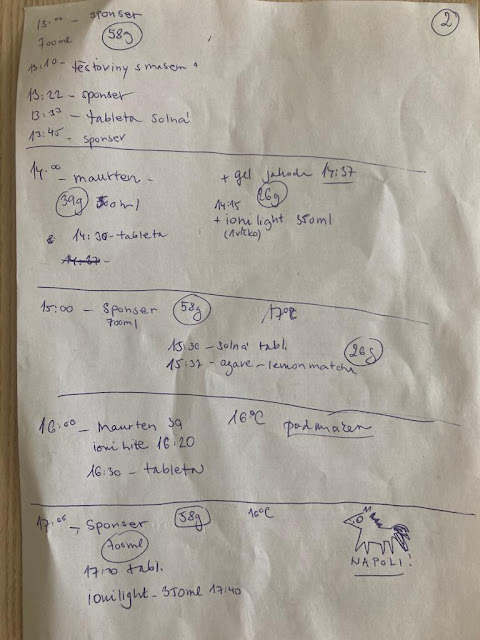 2
13:00 - sponser
700ml 58g
13:10 - těstoviny s masem
13:22 - sponser
13:33 - tableta solná
13:45 - sponser
14:00 - maurten -
39g
14:30 - tableta
+ gel jahoda 14:37
26g
14:15
+ ionilight 350ml
(1víčko)
15:00 - Sponser 58g 17°C
700ml
15:30 - solná tabl.
15:37 - agave - lemon matcha 26g
16:00 - Maurten 39 16°C
ionilite 16:20
16:30 - tableta
17:05 - Sponser 58g 16°C
700ml
17:30 tabl.
ionilight - 350ml 17:40
NAPOLI!